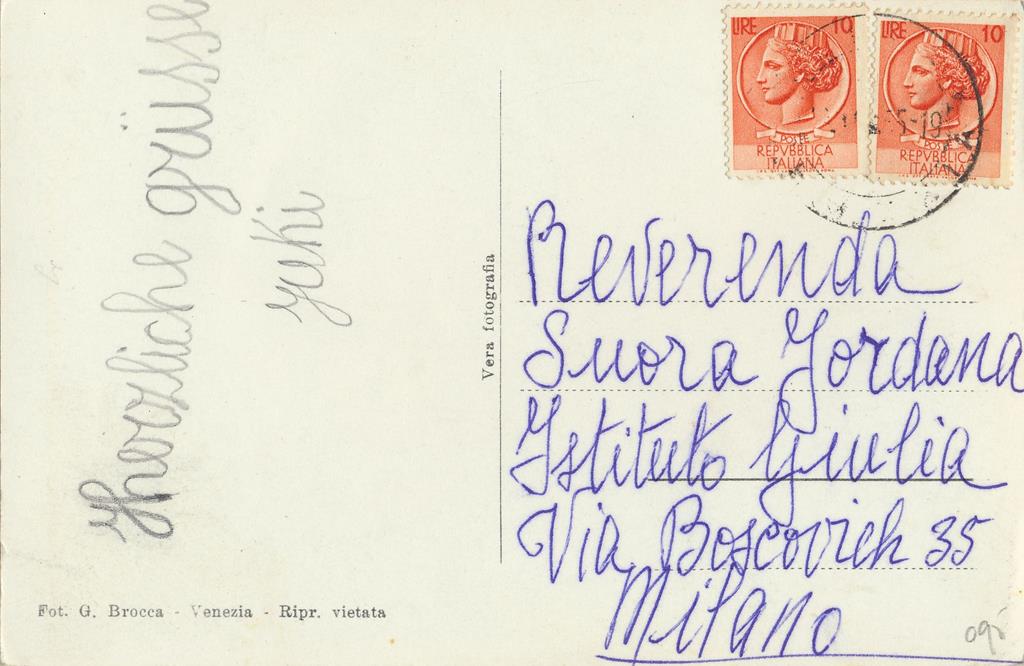 Herzliche grüsse
Yuki
Vera fotografia
LIRE 10
POSTE
REPVBBLICA
ITALIANA
LIRE 10
POSTE
REPVBBLICA
ITALIANA
Reverenda
Suora Jordana
Istituto Giulia
Via Boscovich 35
Milano
Fot. G. Brocca - Venezia - Ripr. vietata